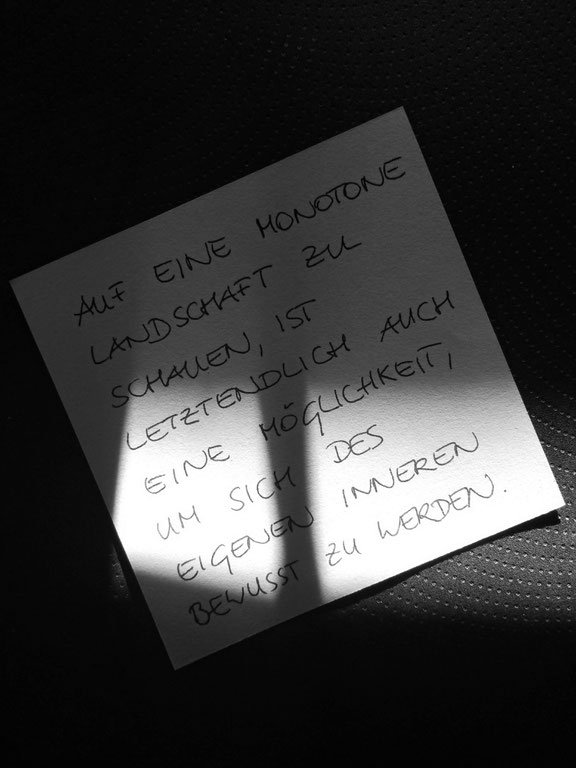 AUF EINE MONOTONE
LANDSCHAFT ZU
SCHAUEN, IST
LETZTENDLICH AUCH
EINE MÖGLICHKEIT,
UM SICH DES
EIGENEN INNEREN
BEWUSST ZU WERDEN.